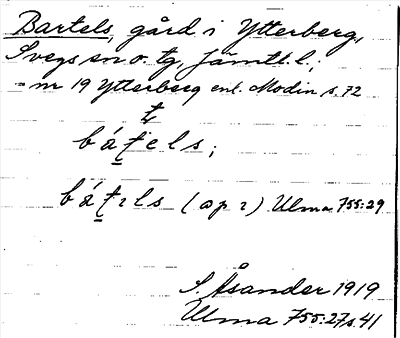 Bartels, gård i Ytterberg,
Svegs sn o. tg, Jämtl. l.;
= nr 19 Ytterberg enl. Modin s. 72
t
bátels;
bátıls (op ı) Ulma 755:29
S. Åsander 1919
Ulma 755:27 s. 41